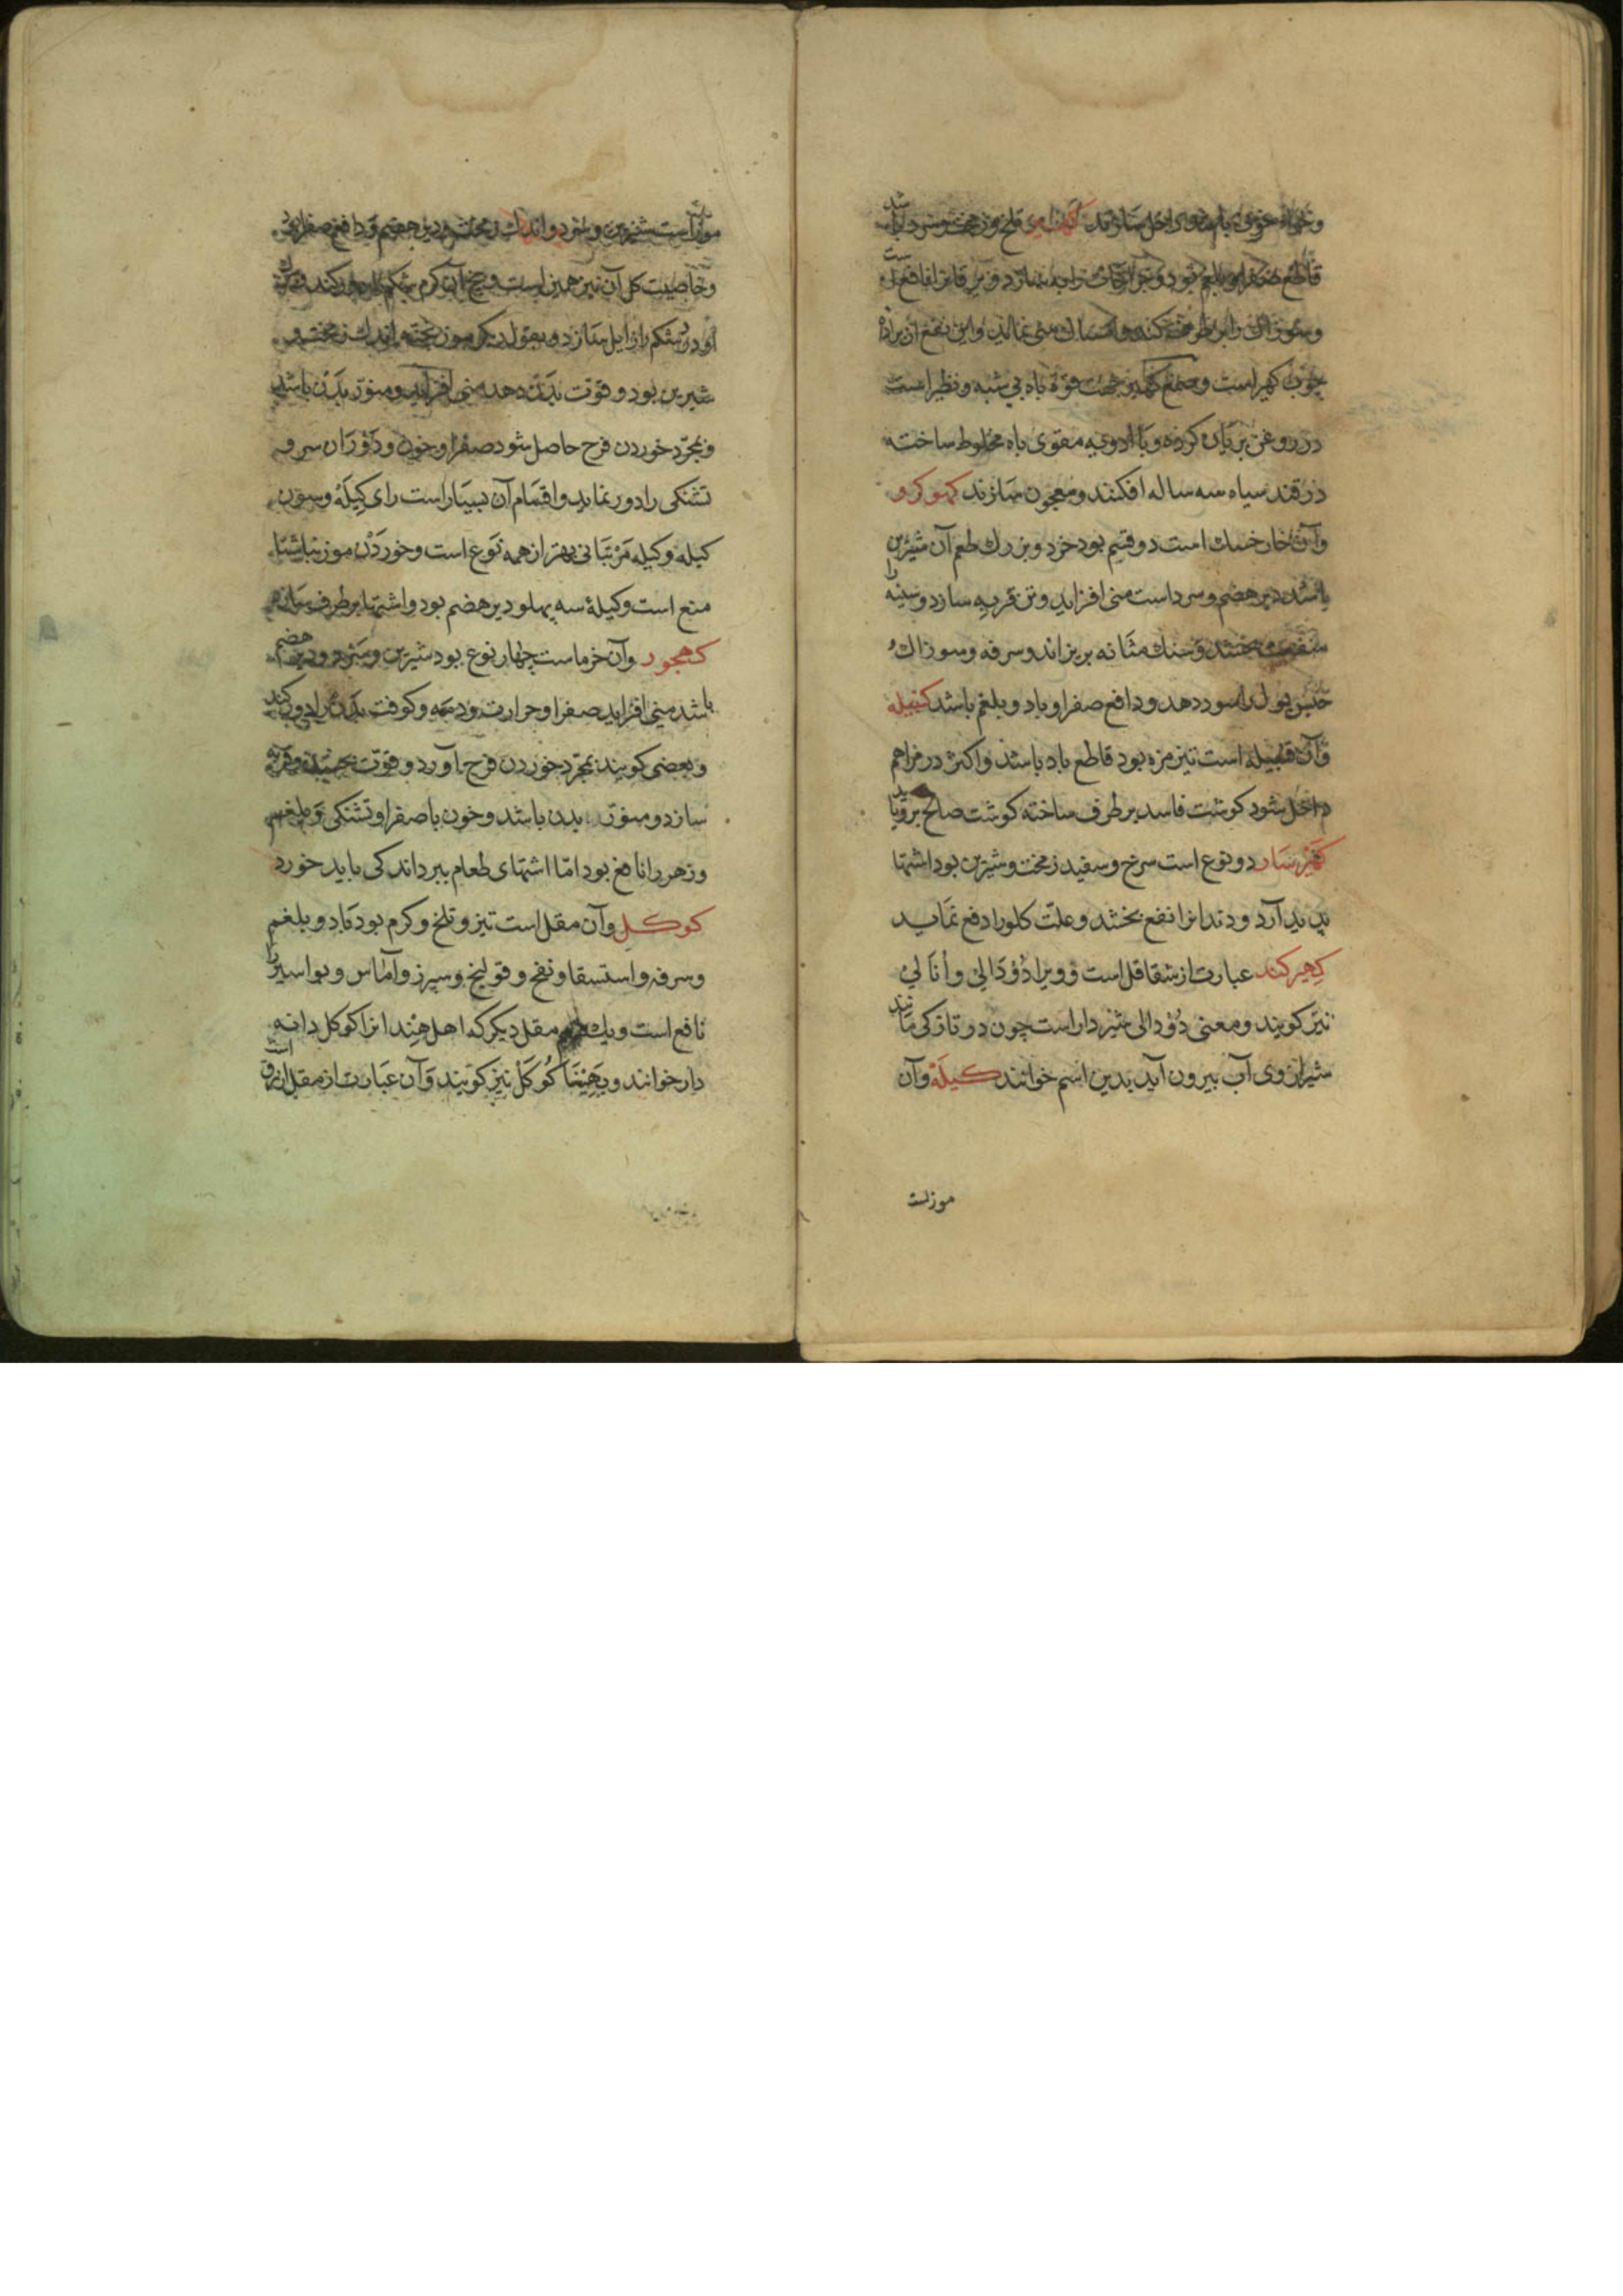 قاطع صفرا و بلغم بود و جراحات را به سازد و یرقانرا نافع است
چوب کهیر است و صمغ کهیر جهت قوة باه بی شبه و نظیر است
در روغن بریان کرده و با ادویه مقوی باه مخلوط ساخته
در قند سیاه سه ساله افکنند و معجون سازند کهوکرو
و آن خار خسک است دو قسم بود خرد و بزرک طعم آن شیرین
باشد دیر هضم و سرد است منی افزاید و تن فربه سازد و سینه را
منفعت بخشد و سنک مثانه بریزاند و سرفه و سوزاک و
حبس بول را سود دهد و دافع صفرا و باد و بلغم باشد کنبیله
و آن قنبیله است تیز مزه بود قاطع باد باشد و اکثر در مراهم
داخل شود کوشت فاسد بر طرف ساخته کوشت صالح برویاند
کهیرسار دو نوع است سرخ و سفید زمخت و شیرین بود اشتها
پدید آرد و دندانرا نفع بخشد و علت کلو را دفع نماید
کهیرکند عبارت از شقاقل است و ویرا دودالی و أنالی
نیز کویند و معنی دودالی شیردار است چون در تازکی مانند
شیر از وی آب بیرون آید بدین اسم خوانند کیله و آن
موز است
موز است شیرین و سرد و اندک زمخت و دیر هضم و دافع صفرا
و خاصیت کل آن نیز همین است و بیخ آن کرم شکم
شیرین بود و قوت بدن دهد منی افزاید و منور بدن باشد
و بمجرد خوردن فرح حاصل شود صفرا و خون و دوران سر و
تشنکی را دور نماید و اقسام آن بسیار است رای کیله و سون
کیله و کیله مرتبانی بهتر از همه نوع است و خوردن موز بناشتا
منع است و کیلۀ سه پهلو دیر هضم بود و اشتها بر طرف سازد
کهجور و آن خرماست چهار نوع بود شیرین و سرد و دیر هضم
باشد منی افزاید صفرا و حرارت و دمه و کوفت بدن را دور کند
و بعضی کویند بمجرد خوردن فرح آورد و قوت بخشیده و فربه
سازد و منور بدن باشد و خون با صفرا و تشنکی و بلغم
و زهر را نافع بود اما اشتهای طعام ببرد اندکی باید خورد
کوکل و آن مقل است تیز و تلخ و کرم بود باد و بلغم
و سرفه و استسقا و نفخ و قولنج و سپرز و آماس و بواسیر را
نافع است و یک مقل دیکر که اهل هند انرا کوکل دانه
دار خوانند و بهینسا کوکل نیز کویند و آن عبارت از مقل ازرق است